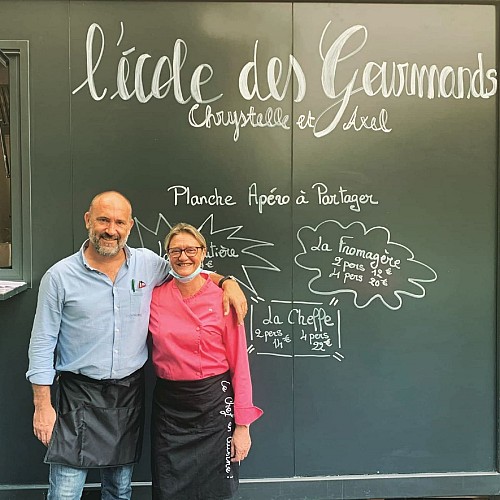 l'école des Garmands
Chrystelle et Axel
Planche Apéro à Partager
La Fromagère
2 pers 12 €
4 pers 20 €
La Cheffe
2 pers 4 pers
14 € 22 €